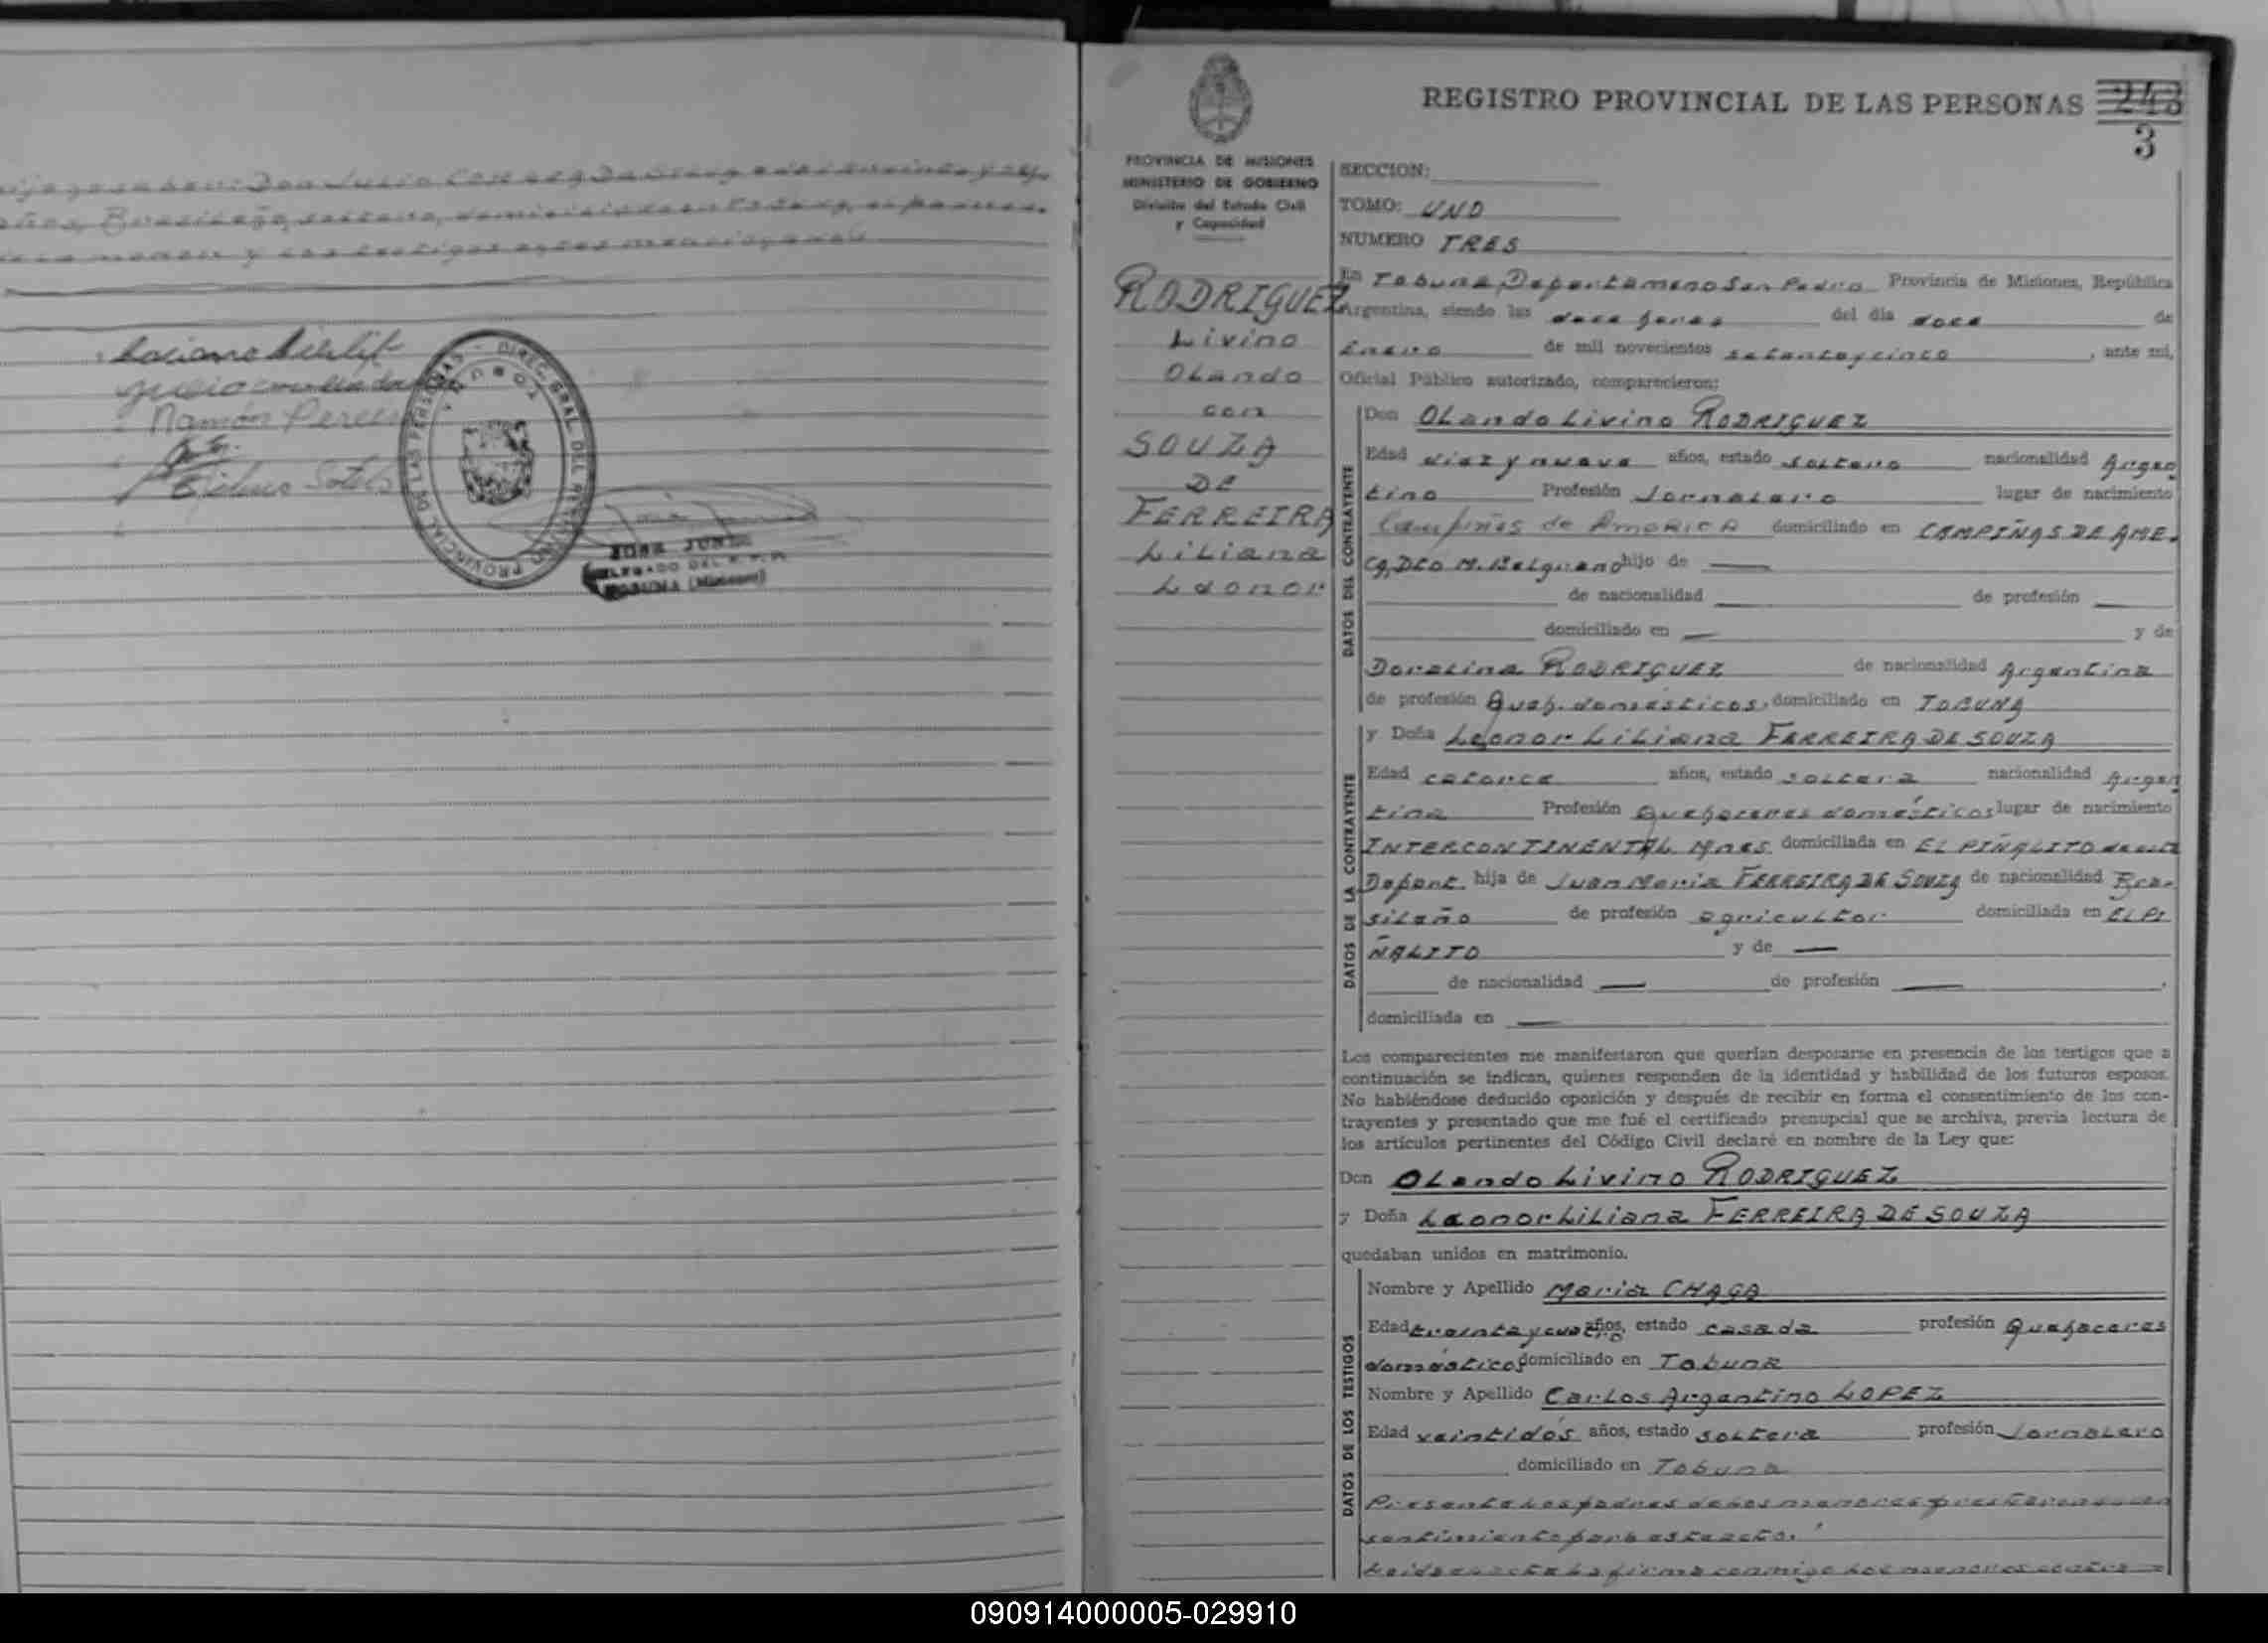 Ramón Perei
DIREC. GRAL. DEL REGISTRO PROVINCIAL DE LAS PERSONAS
TOBUNA
JOSE JUNG
DELEGADO DEL R. P. P.
TOBUNA (Misiones)
REGISTRO PROVINCIAL DE LAS PERSONAS 243
3
PROVINCIA DE MISIONES
MINISTERIO DE GOBIERNO
División del Estado Civil
y Capacidad
RODRIGUEZ
Livino
OLando
con
SOUZA
DE
FERREIRA
LiLiana
Leonor
SECCION:
TOMO: UNO
NUMERO TRES
En Tobuna, Departameno San Pedro Provincia de Misiones, República
Argentina, siendo las doce horas del día doce de
Enero de mil novecientos setenta y cinco, ante mí,
Oficial Público autorizado, comparecieron:
DATOS DEL CONTRAYENTE
Don OLando Livino RODRIGUEZ
Edad diez y nueve años, estado soltero nacionalidad Argen
tino Profesión Jornalero lugar de nacimiento
Campiñas de AméRICA domiciliado en CAMPIÑAS DE AME.
CA, DTO M. Belgrano hijo de —
de nacionalidad — de profesión —
domiciliado en — y de
Doralina RODRIGUEZ de nacionalidad Argentina
de profesión Queh. domésticos, domiciliado en TOBUNA
DATOS DE LA CONTRAYENTE
y Doña Leonor LiLiana FERREIRA DE SOUZA
Edad catorce años, estado soltera nacionalidad Argen
tina Profesión Quehaceres domésticos lugar de nacimiento
INTERCONTINENTAL Mnes. domiciliada en EL PIÑALITO de este
Depart. hija de Juan Maria FERREIRA DE SOUZA de nacionalidad Bra-
sileño de profesión agricultor domiciliada en EL PI
ÑALITO y de —
de nacionalidad — de profesión —
domiciliada en —
Los comparecientes me manifestaron que querían desposarse en presencia de los testigos que a
continuación se indican, quienes responden de la identidad y habilidad de los futuros esposos.
No habiéndose deducido oposición y después de recibir en forma el consentimiento de los con-
trayentes y presentado que me fué el certificado prenupcial que se archiva, previa lectura de
los artículos pertinentes del Código Civil declaré en nombre de la Ley que:
Don OLando Livino RODRIGUEZ
y Doña Leonor LiLiana FERREIRA DE SOUZA
quedaban unidos en matrimonio.
DATOS DE LOS TESTIGOS
Nombre y Apellido Maria CHAGA
Edad treinta y años, estado casada profesión Quehaceres
domésticos domiciliado en Tobuna
Nombre y Apellido Carlos Argentino LOPEZ
Edad veintidós años, estado soltera profesión Jornalero
domiciliado en Tobuna
Presente los padres de los menores prestaron su con
sentimiento para este acto.
Leida el acta la firma conmigo los menores
090914000005-029910